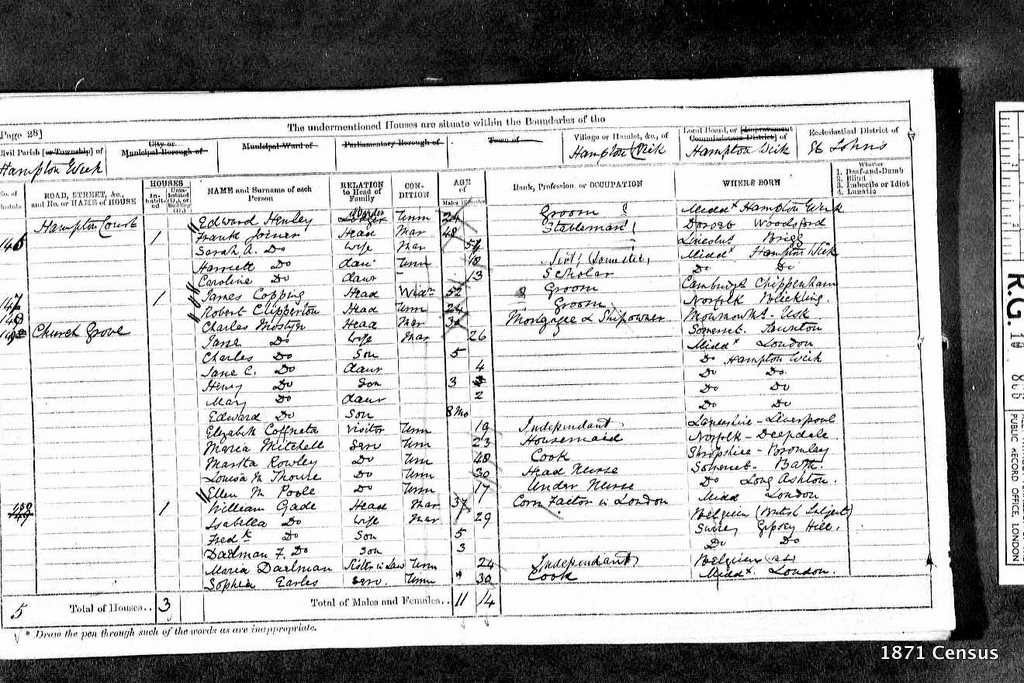 Page 28]
The undermentioned Houses are situate within the Boundaries of the
Civil Parish [or Township] of
City or Municipal Borough of
Municipal Ward of
Parliamentary Borough of
Town of
Village or Hamlet, &c., of
Local Board, or [Improvement Commissioners District] of
Ecclesiastical District of
Hampton Wick
Hampton Wick
Hampton Wick
St Johns
No. of Schedule
ROAD, STREET, &c., and No. or NAME of HOUSE
HOUSES
Inhabited
Uninhabited (U.), or Building (B.)
NAME and Surname of each Person
RELATION to Head of Family
CONDITION
AGE of
Males
Females
Rank, Profession, or OCCUPATION
WHERE BORN
Whether
1. Deaf-and-Dumb
2. Blind
3. Imbecile or Idiot
4. Lunatic
Hampton Court Edward Henley Lodger Unm 24 Groom Middx Hampton Wick
146 1 Frank Joiner Head Mar 48 Stableman Dorset Woodsford
Sarah A. Do Wife Mar Lincolns Brigg
Harriett Do daur Unm 18 Middx Hampton Wick
Caroline Do daur 13 Scholar Do Do
147 1 James Copping Head Widr 52 Groom Cambridge Chippenham
148 Robert Clipperton Head Unm 24 Groom Norfolk Blickling
Church Grove Charles Mostyn Head Mar Mortgagee & Shipowner Monmouths. Usk
Jane Do Wife Mar 26 Somerset. Taunton
Charles Do Son 5 Middx London
Jane C. Do daur 4 Do Hampton Wick
Henry Do Son 3 Do Do
Mary Do daur 2 Do Do
Edward Do Son 8 Mo Do Do
Elizabeth Visitor Unm 19 Independant Lancashire - Liverpool
Maria Mitchell Serv Unm 23 Housemaid Norfolk - Deepdale
Martha Rowley Do Unm 40 Cook Shropshire - Bromley
Louisa M Do Unm 30 Head Nurse Somerset. Bath
Ellen M Poole Do Unm 17 Under Nurse Do Long Ashton.
150 1 William Gade Head Mar 37 Corn Factor in London Midd London
Isabella Do Wife Mar 29 Belgium (British Subject)
Fredk Do Son 5 Surrey Gipsey Hill.
Daelman F. Do Son 3 Do Do
Maria Daelman Sister in Law Unm 24 Independant Belgium
Sophia Earles Serv. Unm 30 Cook Middx. London.
5 Total of Houses.. 3 Total of Males and Females.. 11 14
* Draw the pen through such of the words as are inappropriate.
R.G. 10
866
PUBLIC RECORD OFFICE, LONDON
1871 Census